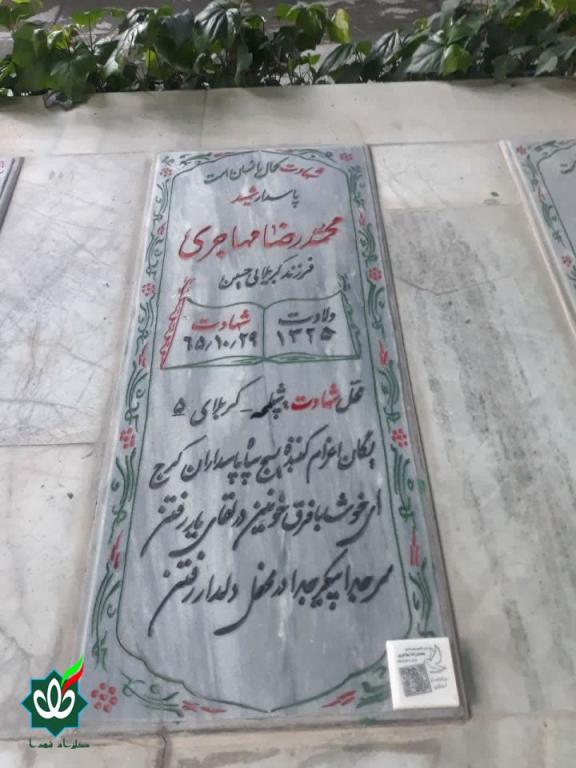 شهادت کمال انسان است
پاسدار شهید
محمدرضا مهاجری
فرزند کربلائی حسین
ولادت
۱۳۲۵
شهادت
۶۵/۱۰/۲۹
محل شهادت: شلمچه - کربلای ۵
یگان اعزام کننده: بسیج سپاه پاسداران کرج
ای خوشا با فرق خونین در لقای یار رفتن
سر جدا پیکر جدا در محفل دلدار رفتن
گلزار شهدا